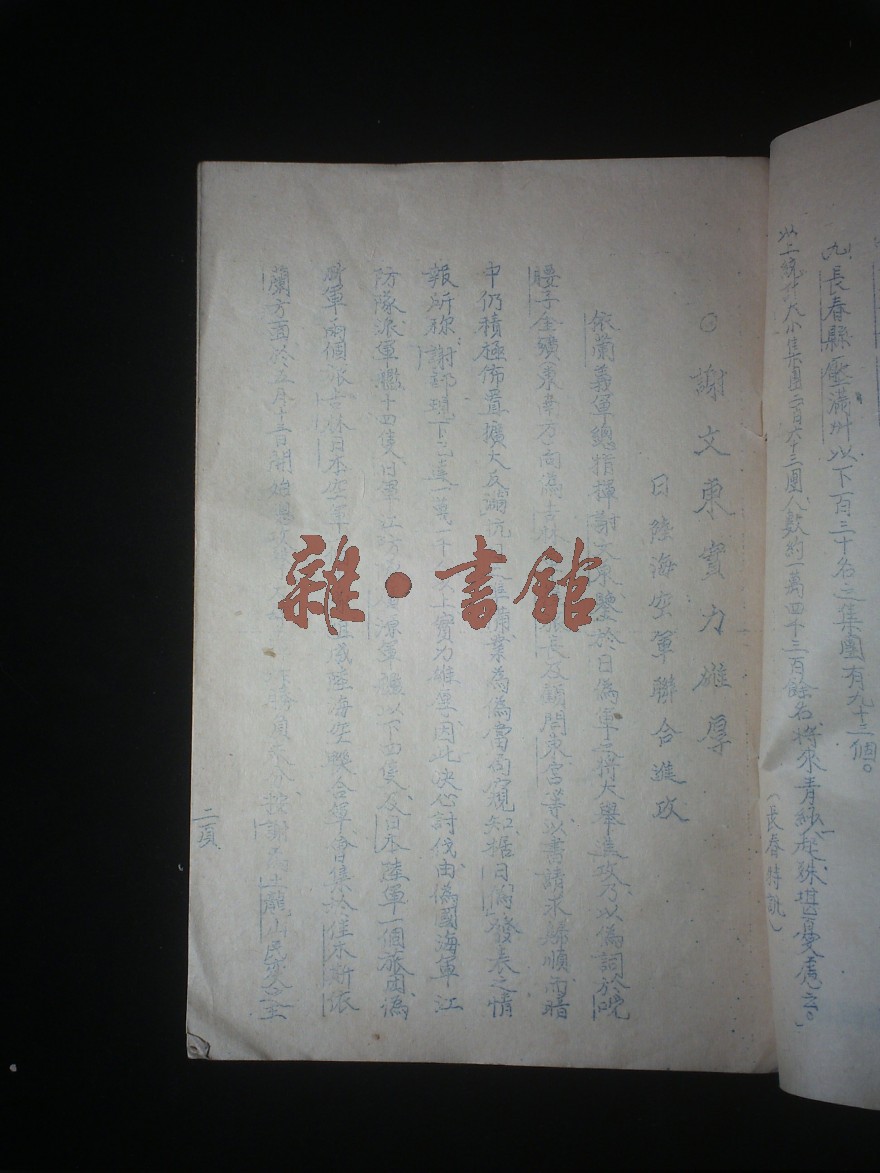 九、長春縣
以下百三十名之集團有九十三個。
以上統計大小集團二百六十三團人數約一萬四千三百餘名將來青紗一起殊堪憂慮云。
(長春特訊)
○謝文東實力雄厚
日陸海空軍聯合進攻
依蘭義軍總指揮謝文東鑒於日偽軍之將大舉進攻乃以偽詞於晚
腰子金礦東南方向偽吉林 長及顧問東宮等以書請求歸順而暗
中仍積極佈置擴大反滿抗日 為偽當局窺知據日偽發表之情
報所称謝部現下已達一萬 以上實力雄厚因此决心討伐由偽國海軍江
防隊派軍艦十四隻日軍江防 軍艦以下四隻及日本陸軍一個旅團偽
軍兩個派吉林日本空軍 組成陸海空聯合軍會集於佳木斯依
蘭方面於五月十三日開始總攻 勝負未分按謝 土龍山民變之主
二頁
雜·書館